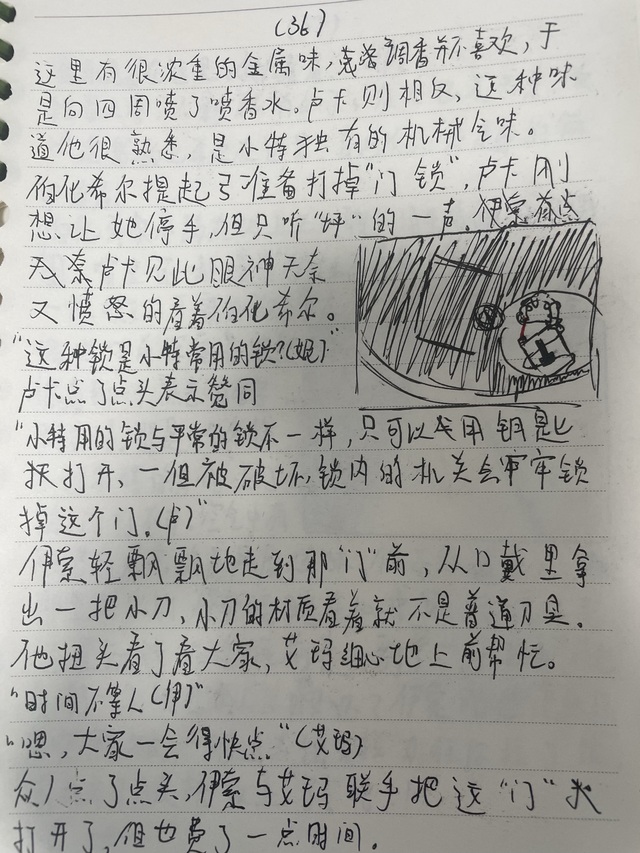 (36)
这里有很浓重的金属味,或者调香并不喜欢,于
是向四周喷了喷香水。卢卡则相反,这种味
道他很熟悉,是小特独有的机械气味。
伯比希尔提起弓准备打掉"门锁",卢卡刚
想让她停手,但只听"呯"的一声。伊索有点
无奈卢卡见此眼神无奈
又愤怒的看着伯比希尔。
"这种锁是小特常用的锁?(妮)"
卢卡点了点头表示赞同
"小特用的锁与平常的锁不一样,只可以用钥匙
来打开,一但被破坏,锁内的机关会牢牢锁
掉这个门。(卢)"
伊索轻飘飘地走到那"门"前,从口戴里拿
出一把小刀,小刀的材质看着就不是普通刀具。
他扭头看了看大家,艾玛细心地上前帮忙。
"时间不等人(伊)"
"嗯,大家一会得快点"(艾玛)
众人点了点头,伊索与艾玛联手把这"门"
打开了,但也费了一点时间。